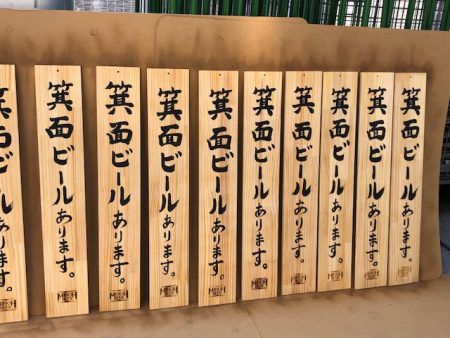 箕面ビールあります。
箕面ビールあります。
箕面ビールあります。
箕面ビールあります。
箕面ビールあります。
箕面ビールあります。
箕面ビールあります。
箕面ビールあります。
箕面ビールあります。
箕面ビールあります。